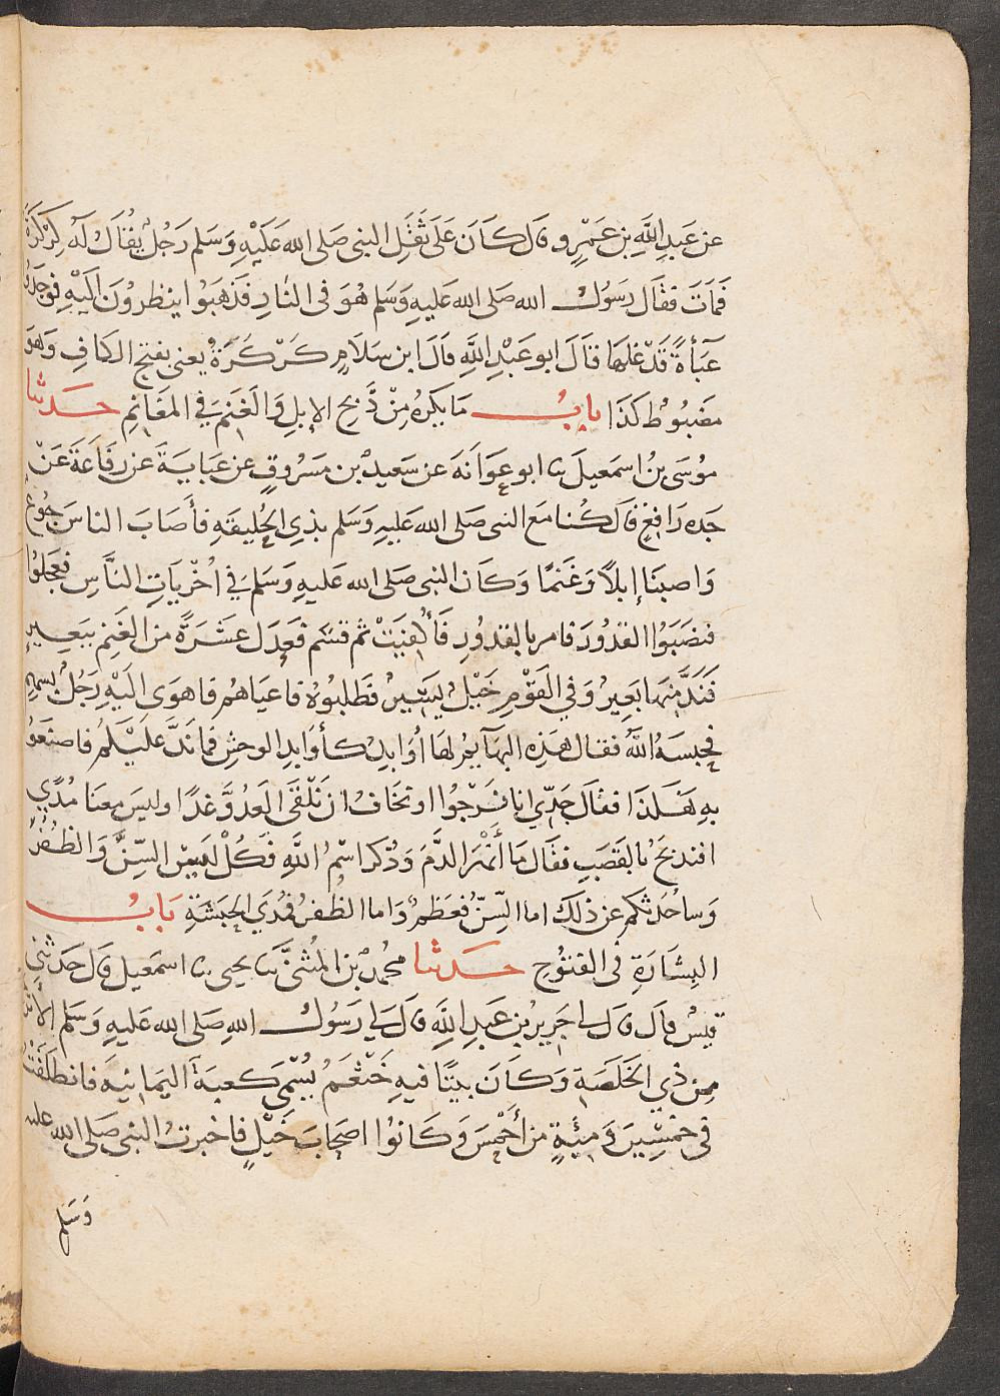 عن عَبدِ اللهِ بن عَمْرٍو قال كَانَ عَلَى ثَقَلِ النبى صَلى الله عَلَيْهِ وَسَلم رَجُلٌ يُقَالُ لَهُ كِرْكَرَةُ
فَمَاتَ فقَالَ رَسُولُ الله صَلى الله عَليهِ وَسَلم هُوَ فى النارِ فذَهَبُوا ينظرُونَ اليْهِ فوَجَدُوا
عَبَاءَةً قَدْ غلهَا قَالَ ابو عَبْدِ اللهِ قالَ ابن سَلامٍ كَرْكَرَةُ يعنى بفتح الكافِ وَهوَ
مَضبُوطٌ كَذَا بابُ مَا يكرَهُ مِنْ ذَبحِ الإبلِ وَالغَنَمِ فى المغَانِمِ حَدثنا
مُوسَى بنُ اسمَعيلَ نا ابو عَوَانةَ عن سَعيدِ بن مَسرُوقٍ عن عَبَايَةَ بن رفَاعَةَ عَنْ
جَده رَافِعٍ قالَ كُنا مَع النبى صَلى الله عَليهِ وَسَلم بذِى الحُليفَةِ فأصَابَ الناسَ جُوعٌ
وَاصبنَا إبلاً وَغَنمًا وَكَان النبى صَلى الله عَليهِ وَسَلم فى اُخْرَيَاتِ النَّاسِ فعَجلوُا
فنصَبُوا القدُورَ فامر بالقدُورِ فَأكفِئَتْ ثم قسَم فعَدَل عَشرَةً من الغَنِم ببَعِيرٍ
فَنَدَّ مِنهَا بَعِيرٌ وَفى القَوْمِ خَيْلٌ يَسِيرٌ فطَلبُوهُ فاعيَاهُم فاهوَى اليْهِ رَجُلٌ بسهمٍ
فحبسَهُ اللهُ فقال هَذِهِ البهَائِمُ لهَا أوَابِدُ كأوَابِدِ الوحشِ فما نَدَّ عَليْكُم فاصنَعُوا
بهِ هَكَذَا فقالَ جَدّي انا نَرْجُوا او نخَافُ ان نَلْقَى العَدُوَّ غدًا وليسَ معنَا مُدًى
افنذبَحُ بالقَصَبِ فقَال مَا أنْهَرَ الدَّمَ وَذُكر اسْمُ اللهِ فكُلْ ليسَ السِّنَّ وَالظفُرَ
وَساُحَدثكُم عن ذَلكَ اما السِّنُّ فعَظمٌ وَاما الظفرُ فمُدَى الحَبَشَةِ بَابُ
البِشَارَةِ فى الفتوُحِ حَدثنا محُمدُ بن المُثنَّى نا يحيى نا اسمعيل قال حَدثنى
قيسٌ قالَ قالَ لى جَرِيرُ بن عَبدِ اللهِ قالَ لى رَسُولُ اللهِ صَلى الله عَليهِ وَسَلم الا تُرِيحُنى
مِن ذي الخَلَصَةِ وَكَانَ بيتًا فيهِ خَثْعَمُ يُسَمّى كعبَةَ اليمَانِيةِ فانطلَقْتُ
فى خمْسِينَ وَمِئَةٍ من أحْمَسَ وَكَانُوا اصحَابَ خَيْلٍ فاخبرتُ النبى صَلى الله عليه
وَسَلم